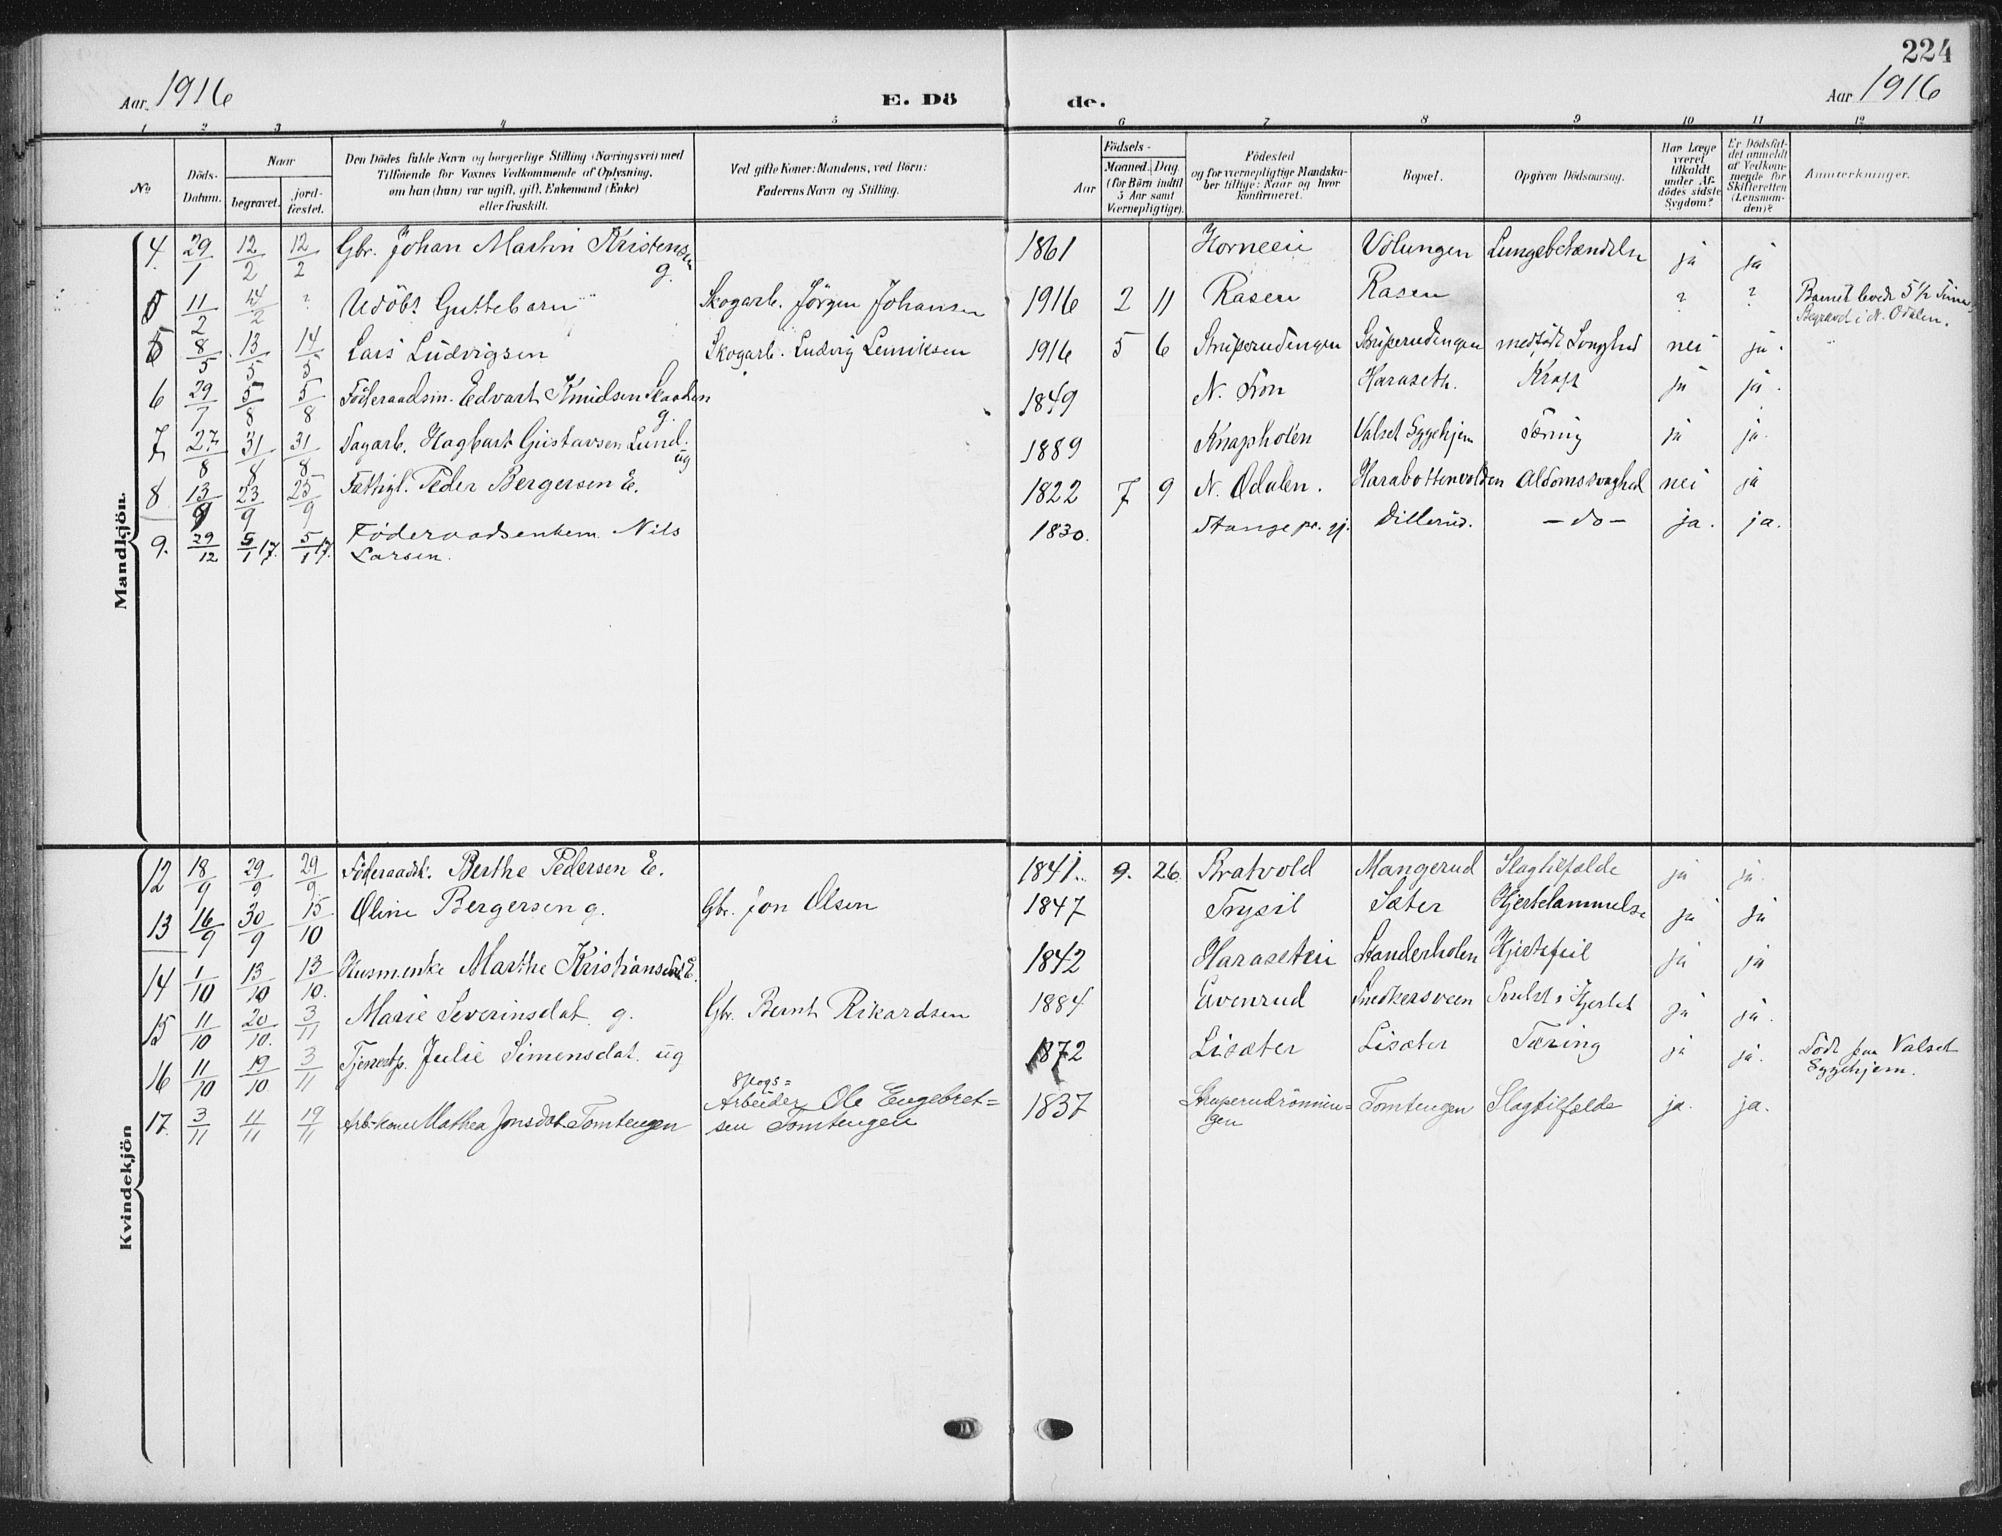 224
Aar 1916 E. Dö
de. Aar 1916
1 2 3 4 5 6 7 8 9 10 11 12
No
Döds-Datum.
Naar
begravet.
jordfæstet.
Den Dödes fulde Navn og borgerlige Stilling (Næringsvei) med
Tilföiende for Voxnes Vedkommende af Oplysning,
om han (hun) var ugift, gift, Enkemand (Enke)
eller fraskilt.
Ved gifte Koner: Mandens, ved Börn:
Faderens Navn og Stilling.
Aar
Födsels-
Maaned. Dag
(for Börn indtil
5 Aar samt
Værnepligtige).
Födested
og for værnepligtige Mandskaber tillige: Naar og hvor
Konfirmeret.
Bopæl.
Opgiven Dödsaarsag.
Har Læge
været
tilkaldt
under Afdödes sidste
Sygdom?
Er Dödsfaldet anmeldt
af Vedkommende for
Skifteretten
(Lensmanden)?
Anmærkninger.
Mandkjön.
4. 29/1 12/2 12/2 Gbr. Johan Martin Kristensen g. 1861 Horneeie Volungen Lungebetændelse ja ja
5 11/2 24/2 ? Udöbt Guttebarn Skogarb. Jörgen Johansen 1916 2 11 Rasen Rasen ? ? Barnet levede 5 1/2 Time. Begravet i N. Odalen.
5 8/5 13/5 14/5 Lars Ludvigsen Skogarb. Ludvig 1916 5 6 medfödt nei ja.
6 29/7 5/8 5/8 Föderaadsm. Edvart Knudsen g. 1849 N. Haraseth. Kræft ja ja.
7 27/8 31/8 31/8 Dagarb. Hagbart Gustavsen Lund. ug 1889 Knapholen Valset Sygehjem Tæring ja ja.
8 13/9 23/9 25/9 Fattigl. Peder Bergersen E. 1822 7 9 N. Odalen. Harabottenvolden Aldomssvaghed nei ja
9. 29/12 5/1 17. 5/1 17. Föderaadsenkem. Nils Larsen. 1830. Stange pr. gj. Dillerud. – do – ja. ja.
Kvindekjön
12 18/9 29/9 29/9 Föderaadsk. Berthe Pedersen E. 1841. 9. 26 Bratvold Mangerud Slagtilfælde ja ja.
13 16/9 30/9 15/10 Oline Bergersen g. Gbr. Jon Olsen 1847 Trysil Sæter Hjertelammelse ja ja
14 1/10 13/10 13/10. Husmenke Marthe Kristiansen E. 1842 Haraseteie Standerholen Hjertefeil ja ja
15 11/10 20/10. 3/11 Marie Severinsdat. g. Gbr. Bernt Rikardsen 1884 Evenrud Smedkersveen ja ja.
16 11/10 19/10 3/11 Tjenestp. Julie Simensdat. ug 1872 Lisæter Lisæter Tæring ja ja. Död paa Valset Sygehjem.
17. 3/11 11/11 19/11 Arb-kone Mathea Jonsdat. Tomtengen Skogs=
Arbeider Ole Engebret=
sen Tomtengen 1837 Struperudrönnin=
gen Tomtengen Slagtilfælde ja. ja.